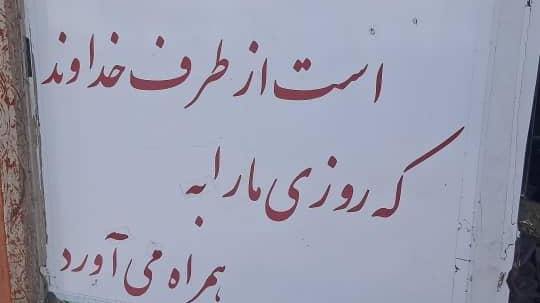 است از طرف خداوند
که روزی ما را به
همراه می آورد